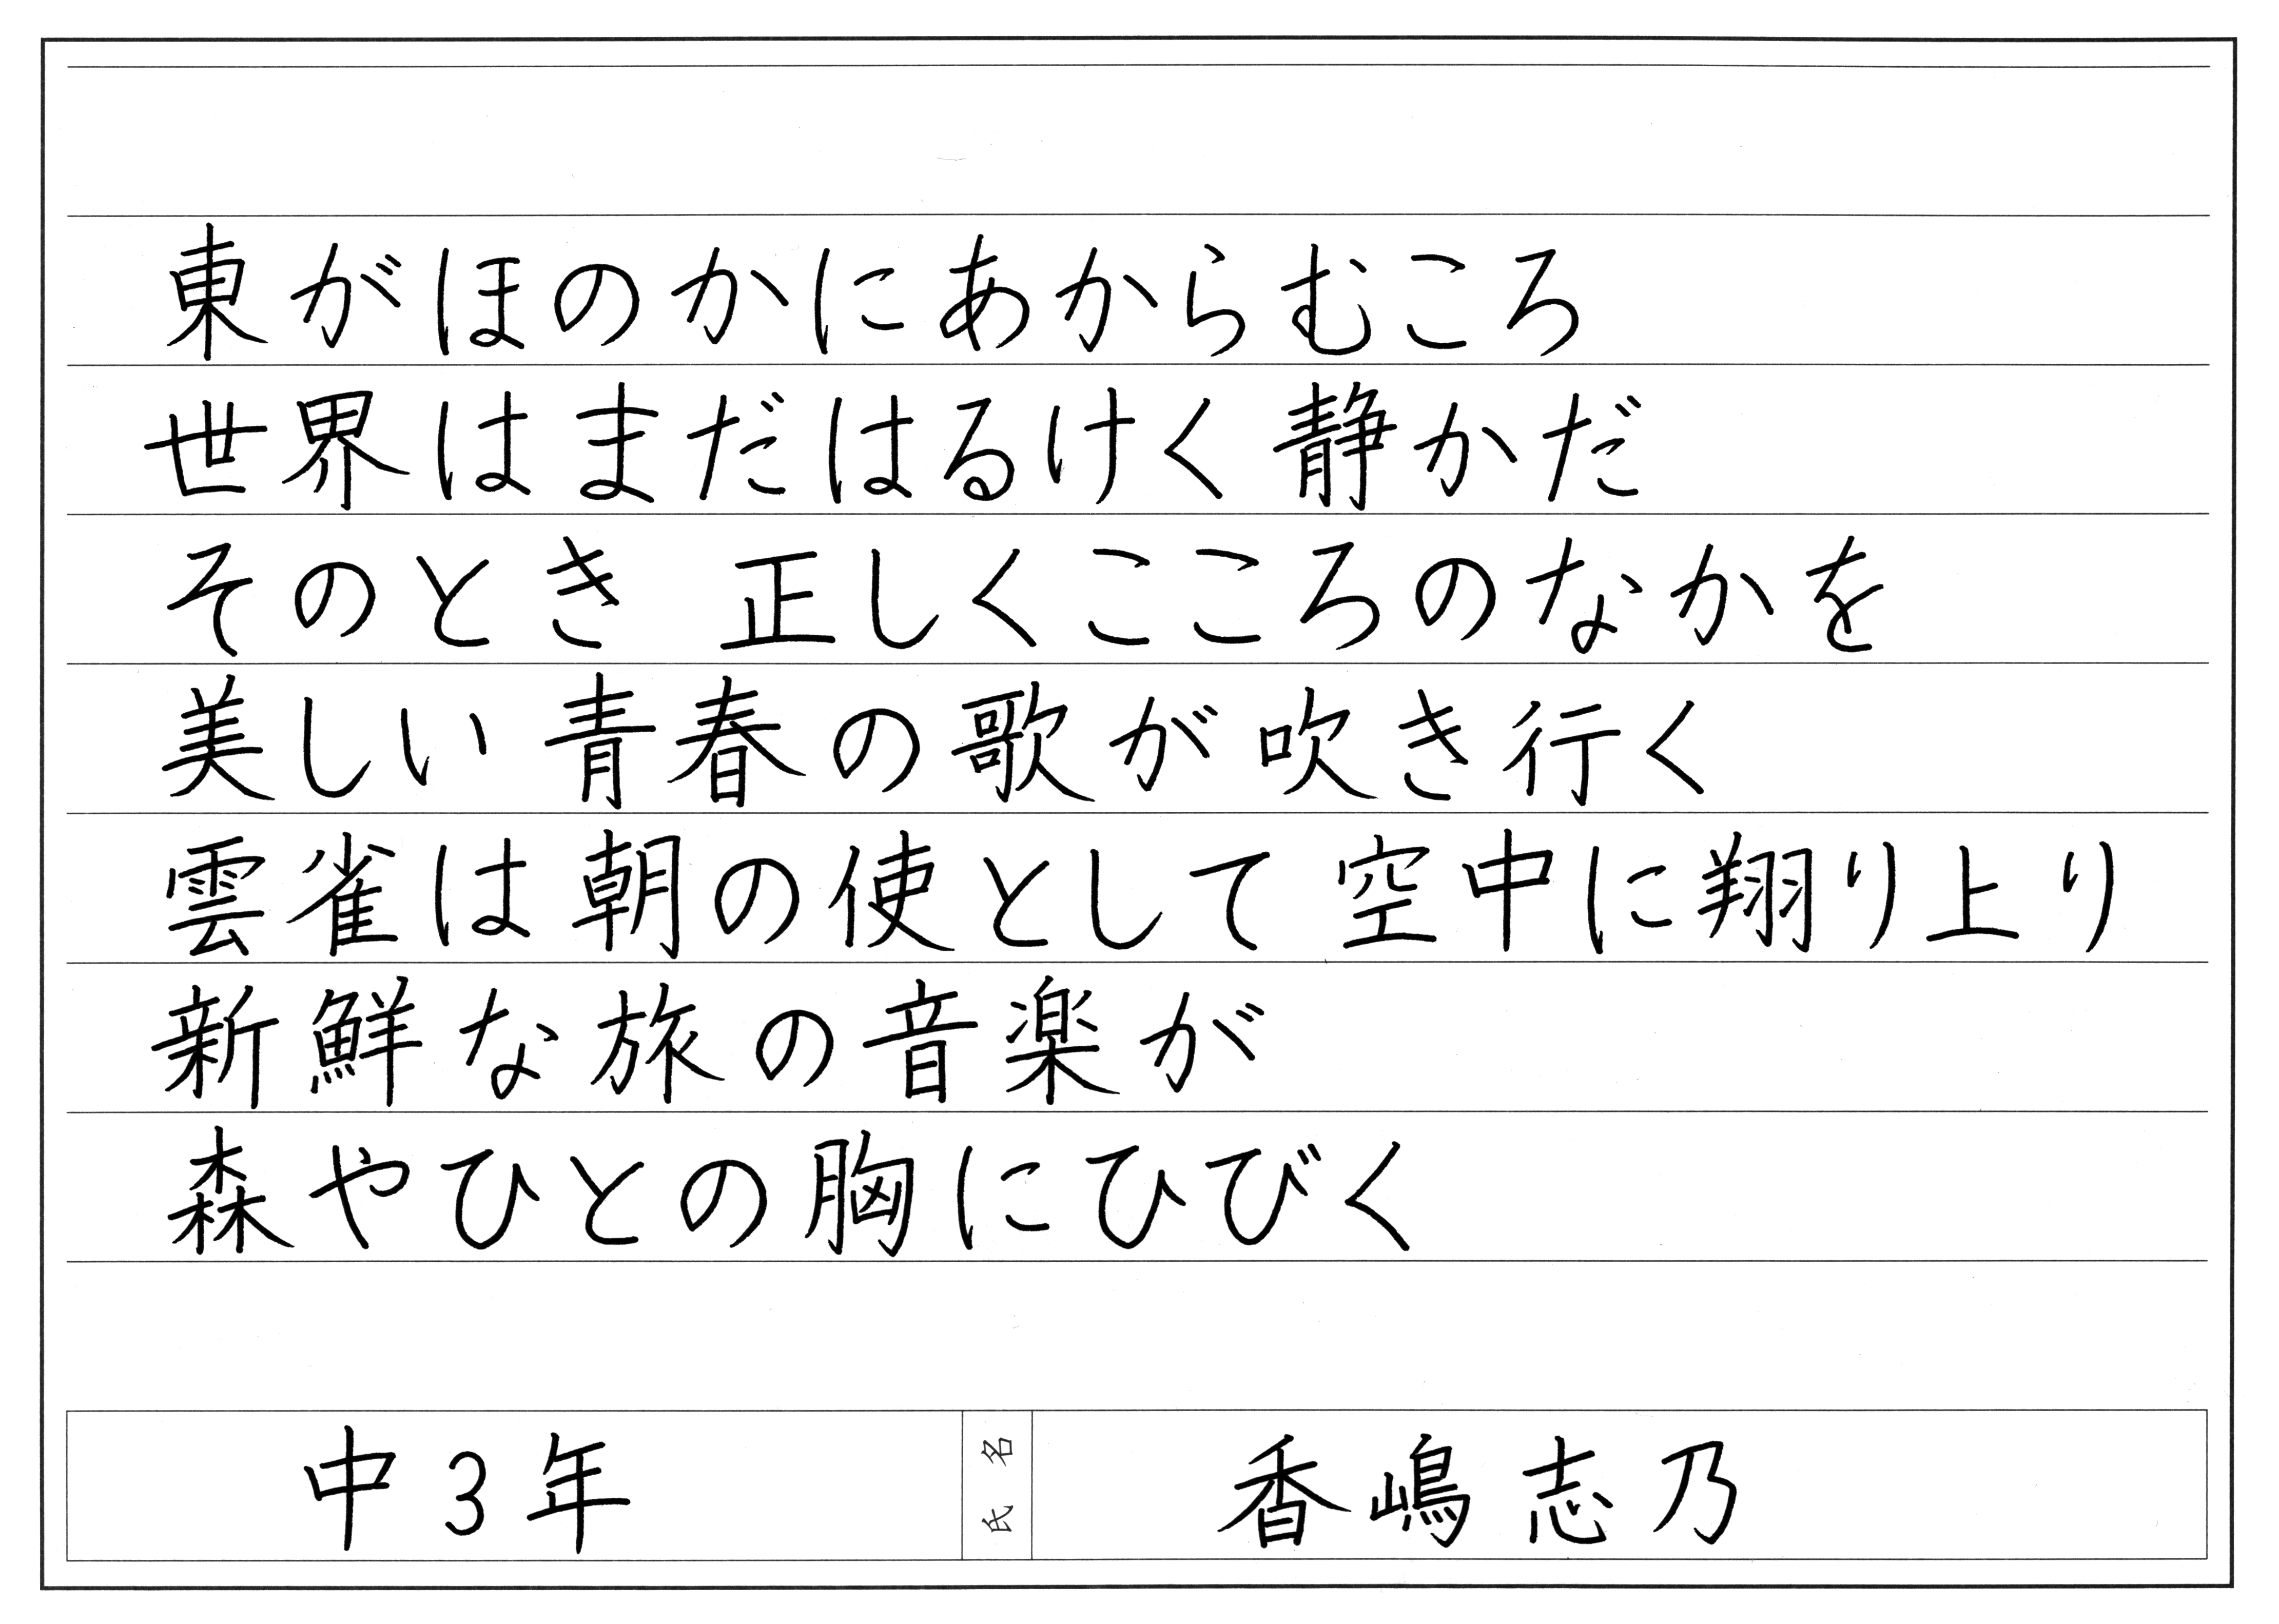 東がほのかにあからむころ
世界はまだはるけく静かだ
そのとき 正しくこころのなかを
美しい青春の歌が吹き行く
雲雀は朝の使として 空中に翔り上り
新鮮な旅の音楽が
森やひとの胸にひびく
中3年 氏名 香嶋志乃